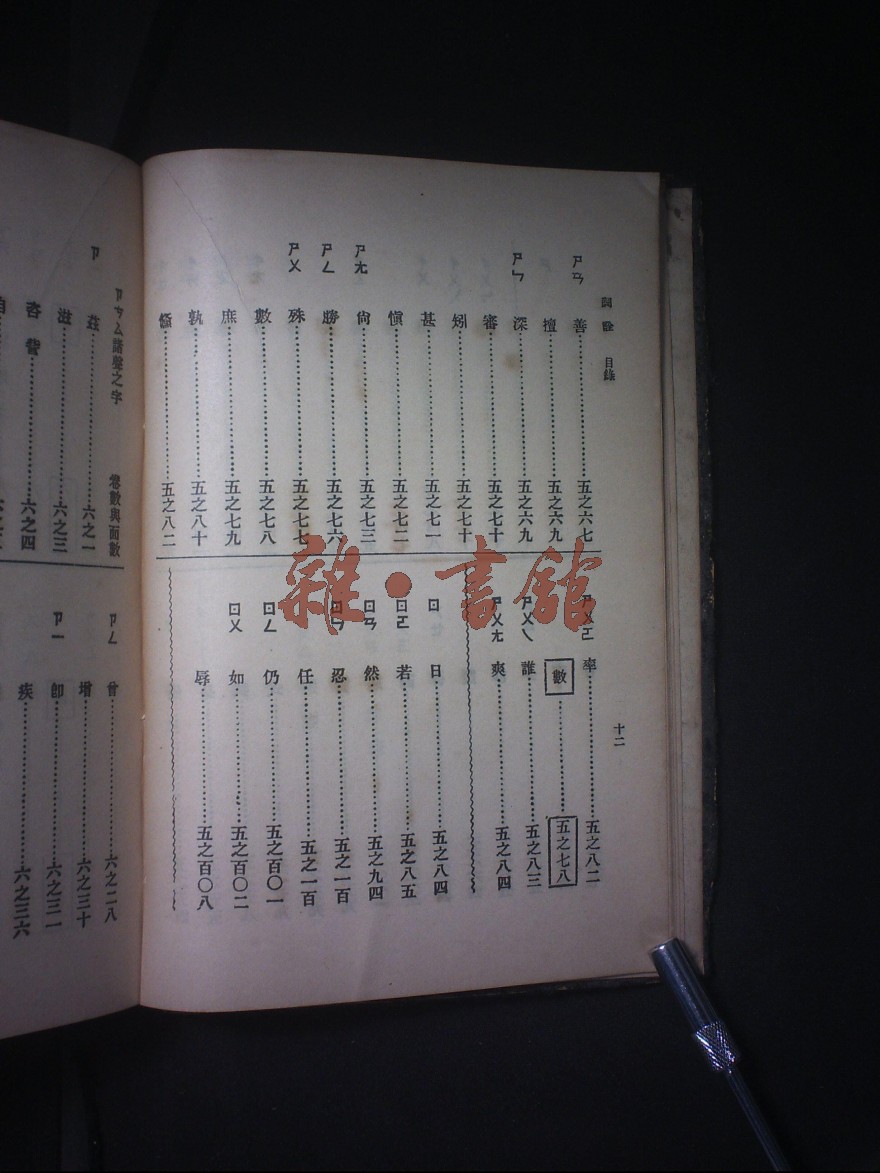 詞詮 目錄
十二
ㄕㄢ 善 五之六七
擅 五之六九
ㄕㄣ 深 五之六九
審 五之七十
矧 五之七十
甚 五之七一
愼 五之七二
ㄕㄤ 尙 五之七三
ㄕㄥ 勝 五之七六
ㄕㄨ 殊 五之七七
數 五之七八
庶 五之七九
孰 五之八十
五之八二
ㄕㄨㄛ 率 五之八二
數 五之七八
ㄕㄨㄟ 誰 五之八三
ㄕㄨㄤ 爽 五之八四
ㄖ 日 五之八四
ㄖㄛ 若 五之八五
ㄖㄢ 然 五之九四
ㄖㄣ 忍 五之一百
任 五之一百
ㄖㄥ 仍 五之百〇一
ㄖㄨ 如 五之百〇二
辱 五之百〇八
ㄗㄘㄙ諸聲之字 卷數與面數
ㄗ 茲 六之一
滋 六之三
咨 訾 六之四
ㄗㄥ 曾 六之二八
增 六之三十
ㄗㄧ 卽 六之三一
疾 六之三六
雜·書館